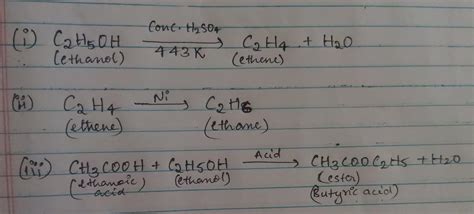 (i) C2H5OH Conc. H2SO4 → 443K C2H4 + H2O
(ethanol) (ethene)
(ii) C2H4 Ni → C2H6
(ethene) (ethane)
(iii) CH3COOH + C2H5OH Acid → CH3COOC2H5 + H2O
(ethanoic acid) (ethanol) (ester)
(Butyric acid)